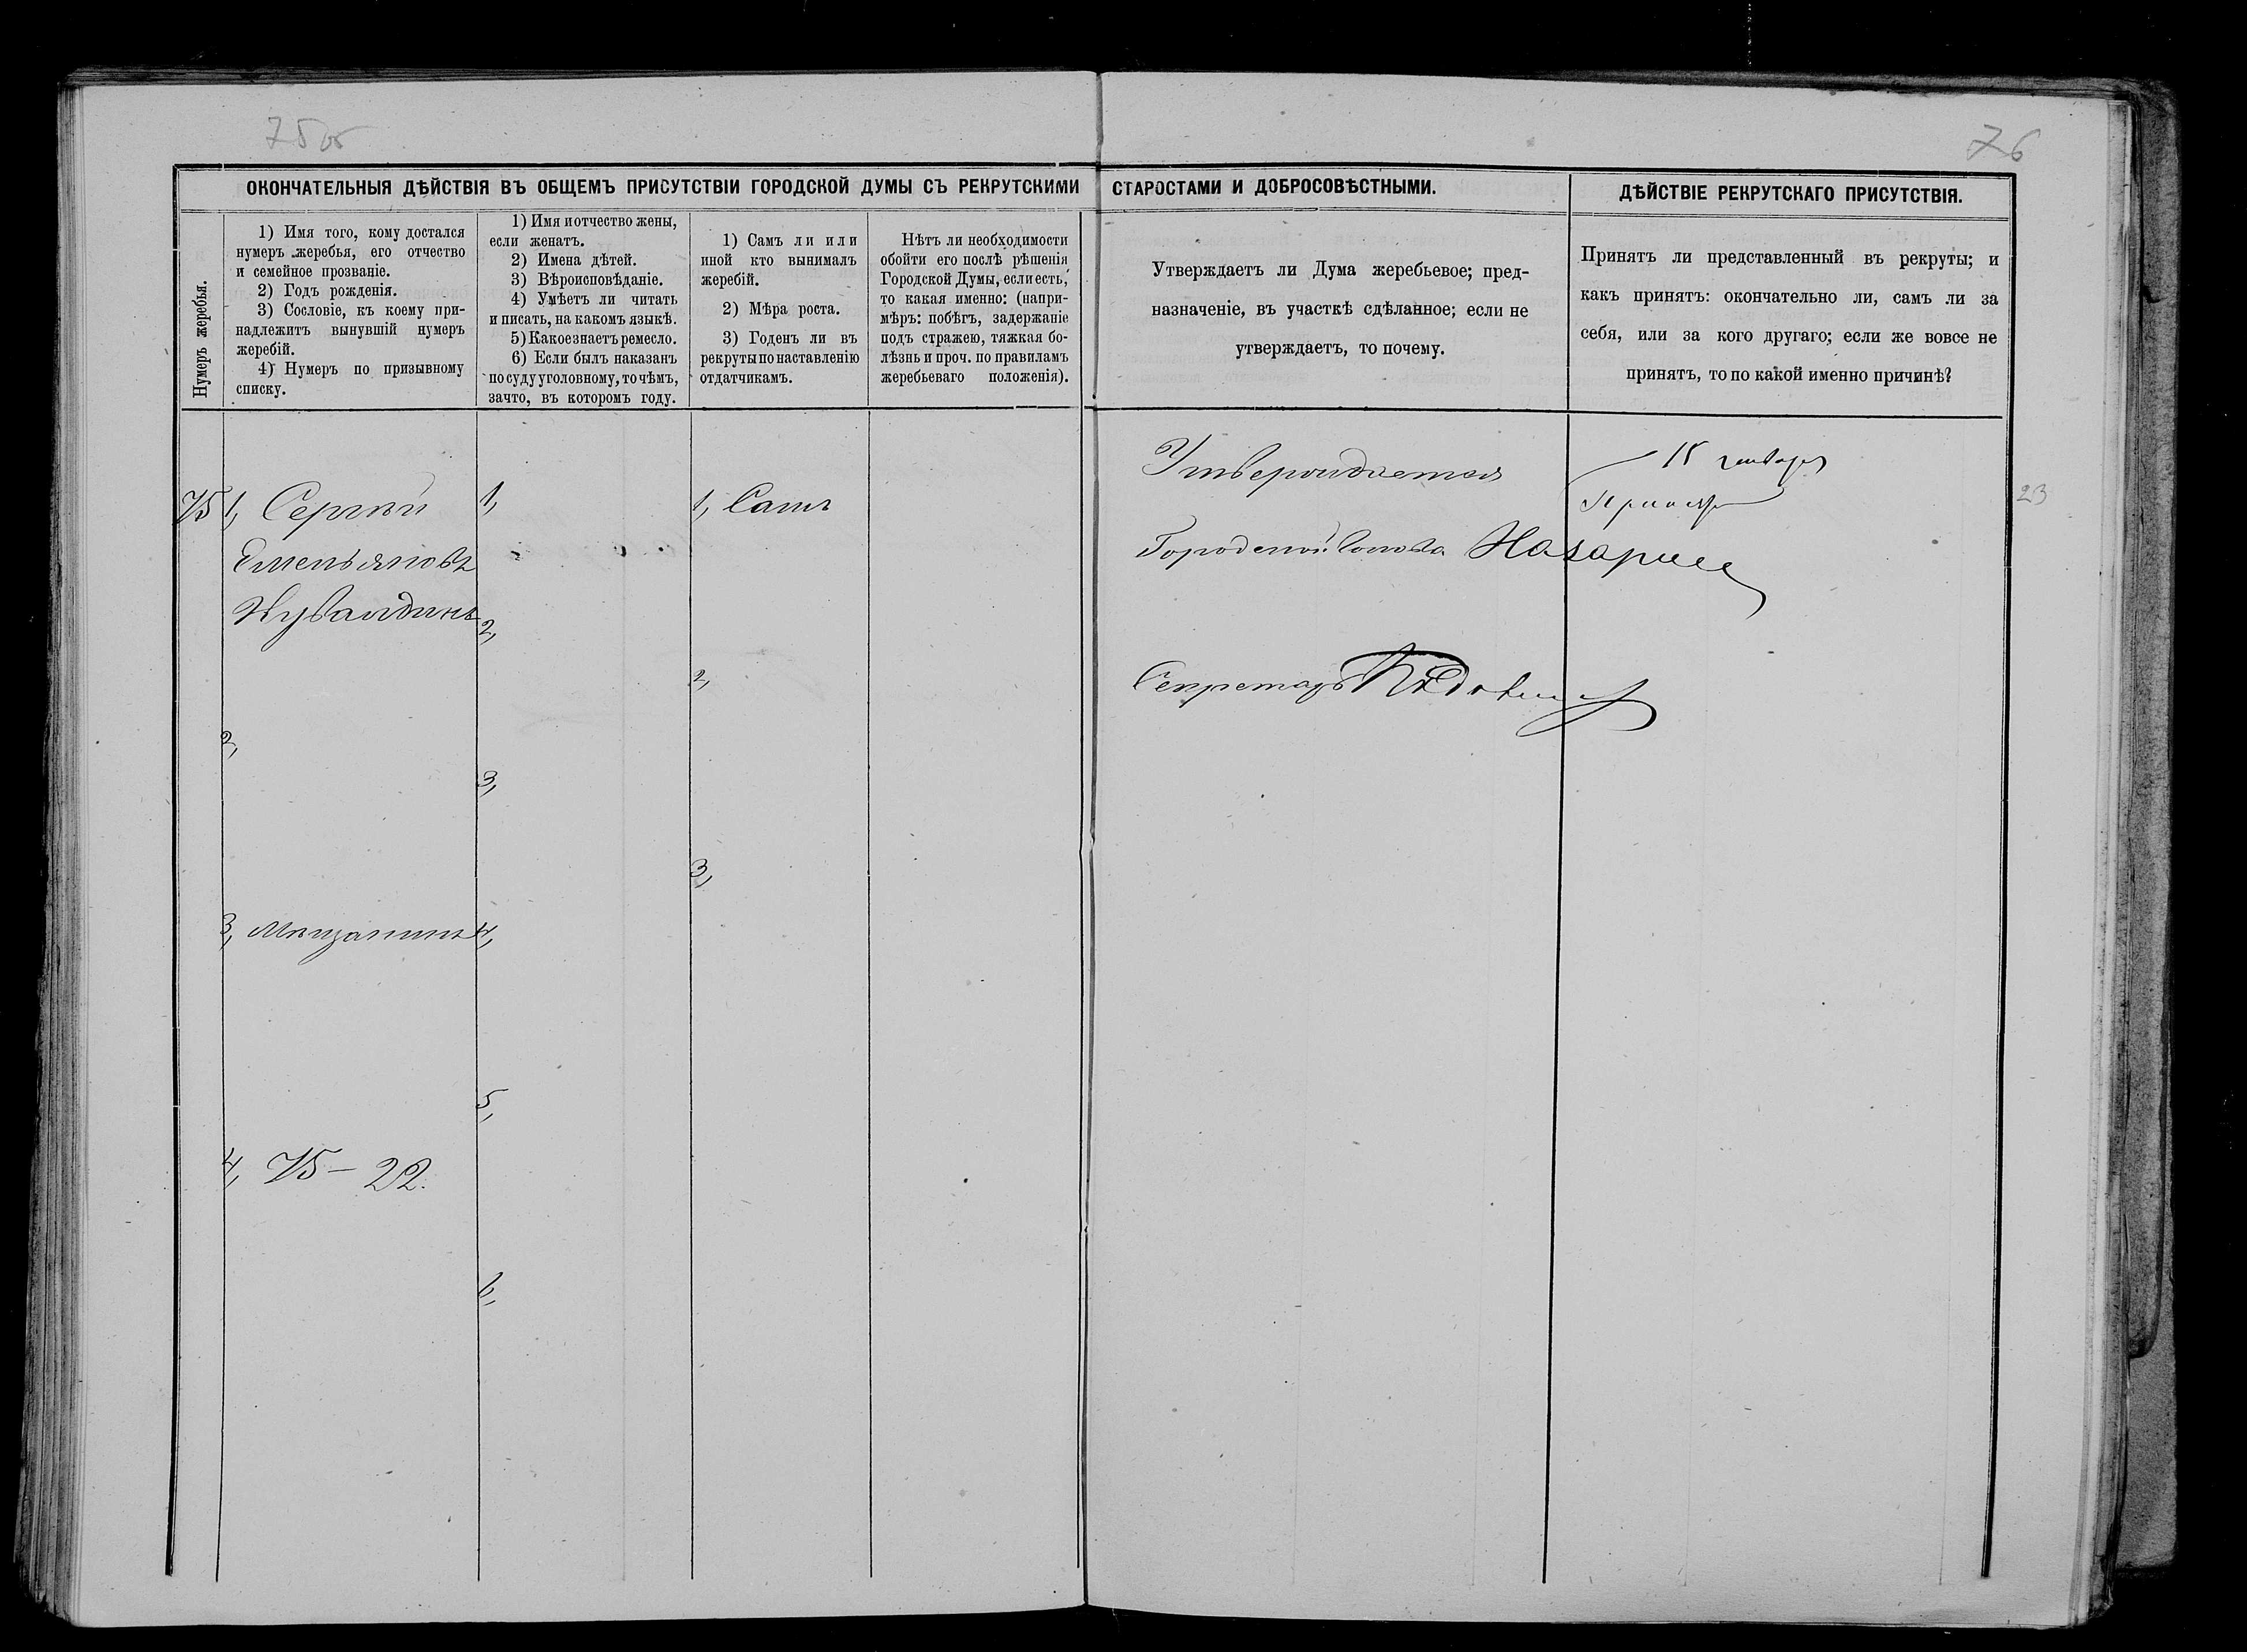 75об
76
ОКОНЧАТЕЛЬНЫЯ ДѢЙСТВІЯ ВЪ ОБЩЕМЪ ПРИСУТСТВІИ ГОРОДСКОЙ ДУМЫ СЪ РЕКРУТСКИМИ СТАРОСТАМИ И ДОБРОСОВѢСТНЫМИ.
ДѢЙСТВІЕ РЕКРУТСКАГО ПРИСУТСТВІЯ.
Нумеръ жеребья.
1) Имя того, кому достался
нумеръ жеребья, его отчество
и семейное прозваніе.
2) Годъ рожденія.
3) Сословіе, къ коему при-
надлежитъ вынувшій нумеръ
жеребій.
4) Нумеръ по призывному
списку.
1) Имя и отчество жены,
если женатъ.
2) Имена дѣтей.
3) Вѣроисповѣданіе.
4) Умѣетъ ли читать
и писать, на какомъ языкѣ.
5) Какое знаетъ ремесло.
6) Если былъ наказанъ
по суду уголовному, то чѣмъ,
за что, въ которомъ году.
1) Самъ ли или
иной кто вынималъ
жеребій.
2) Мѣра роста.
3) Годенъ ли въ
рекруты по наставленію
отдатчикамъ.
Нѣтъ ли необходимости
обойти его послѣ рѣшенія
Городской Думы, если есть,
то какая именно: (напри-
мѣръ: побѣгъ, задержаніе
подъ стражею, тяжкая бо-
лѣзнь и проч. по правиламъ
жеребьеваго положенія).
Утверждаетъ ли Дума жеребьевое; пред-
назначеніе, въ участкѣ сдѣланное; если не
утверждаетъ, то почему.
Принятъ ли представленный въ рекруты; и
какъ принятъ: окончательно ли, самъ ли за
себя, или за кого другаго; если же вовсе не
принятъ, то по какой именно причинѣ?
75
1, Сергѣй
Емельяновъ
Кувалдинъ
2,
3, Мѣщанинъ
4, 75 – 22.
1,
2,
3,
4,
5,
6,
1, Самъ
2,
3,
Утверждается
Городской Голова
Секретарь
января
Принятъ
23